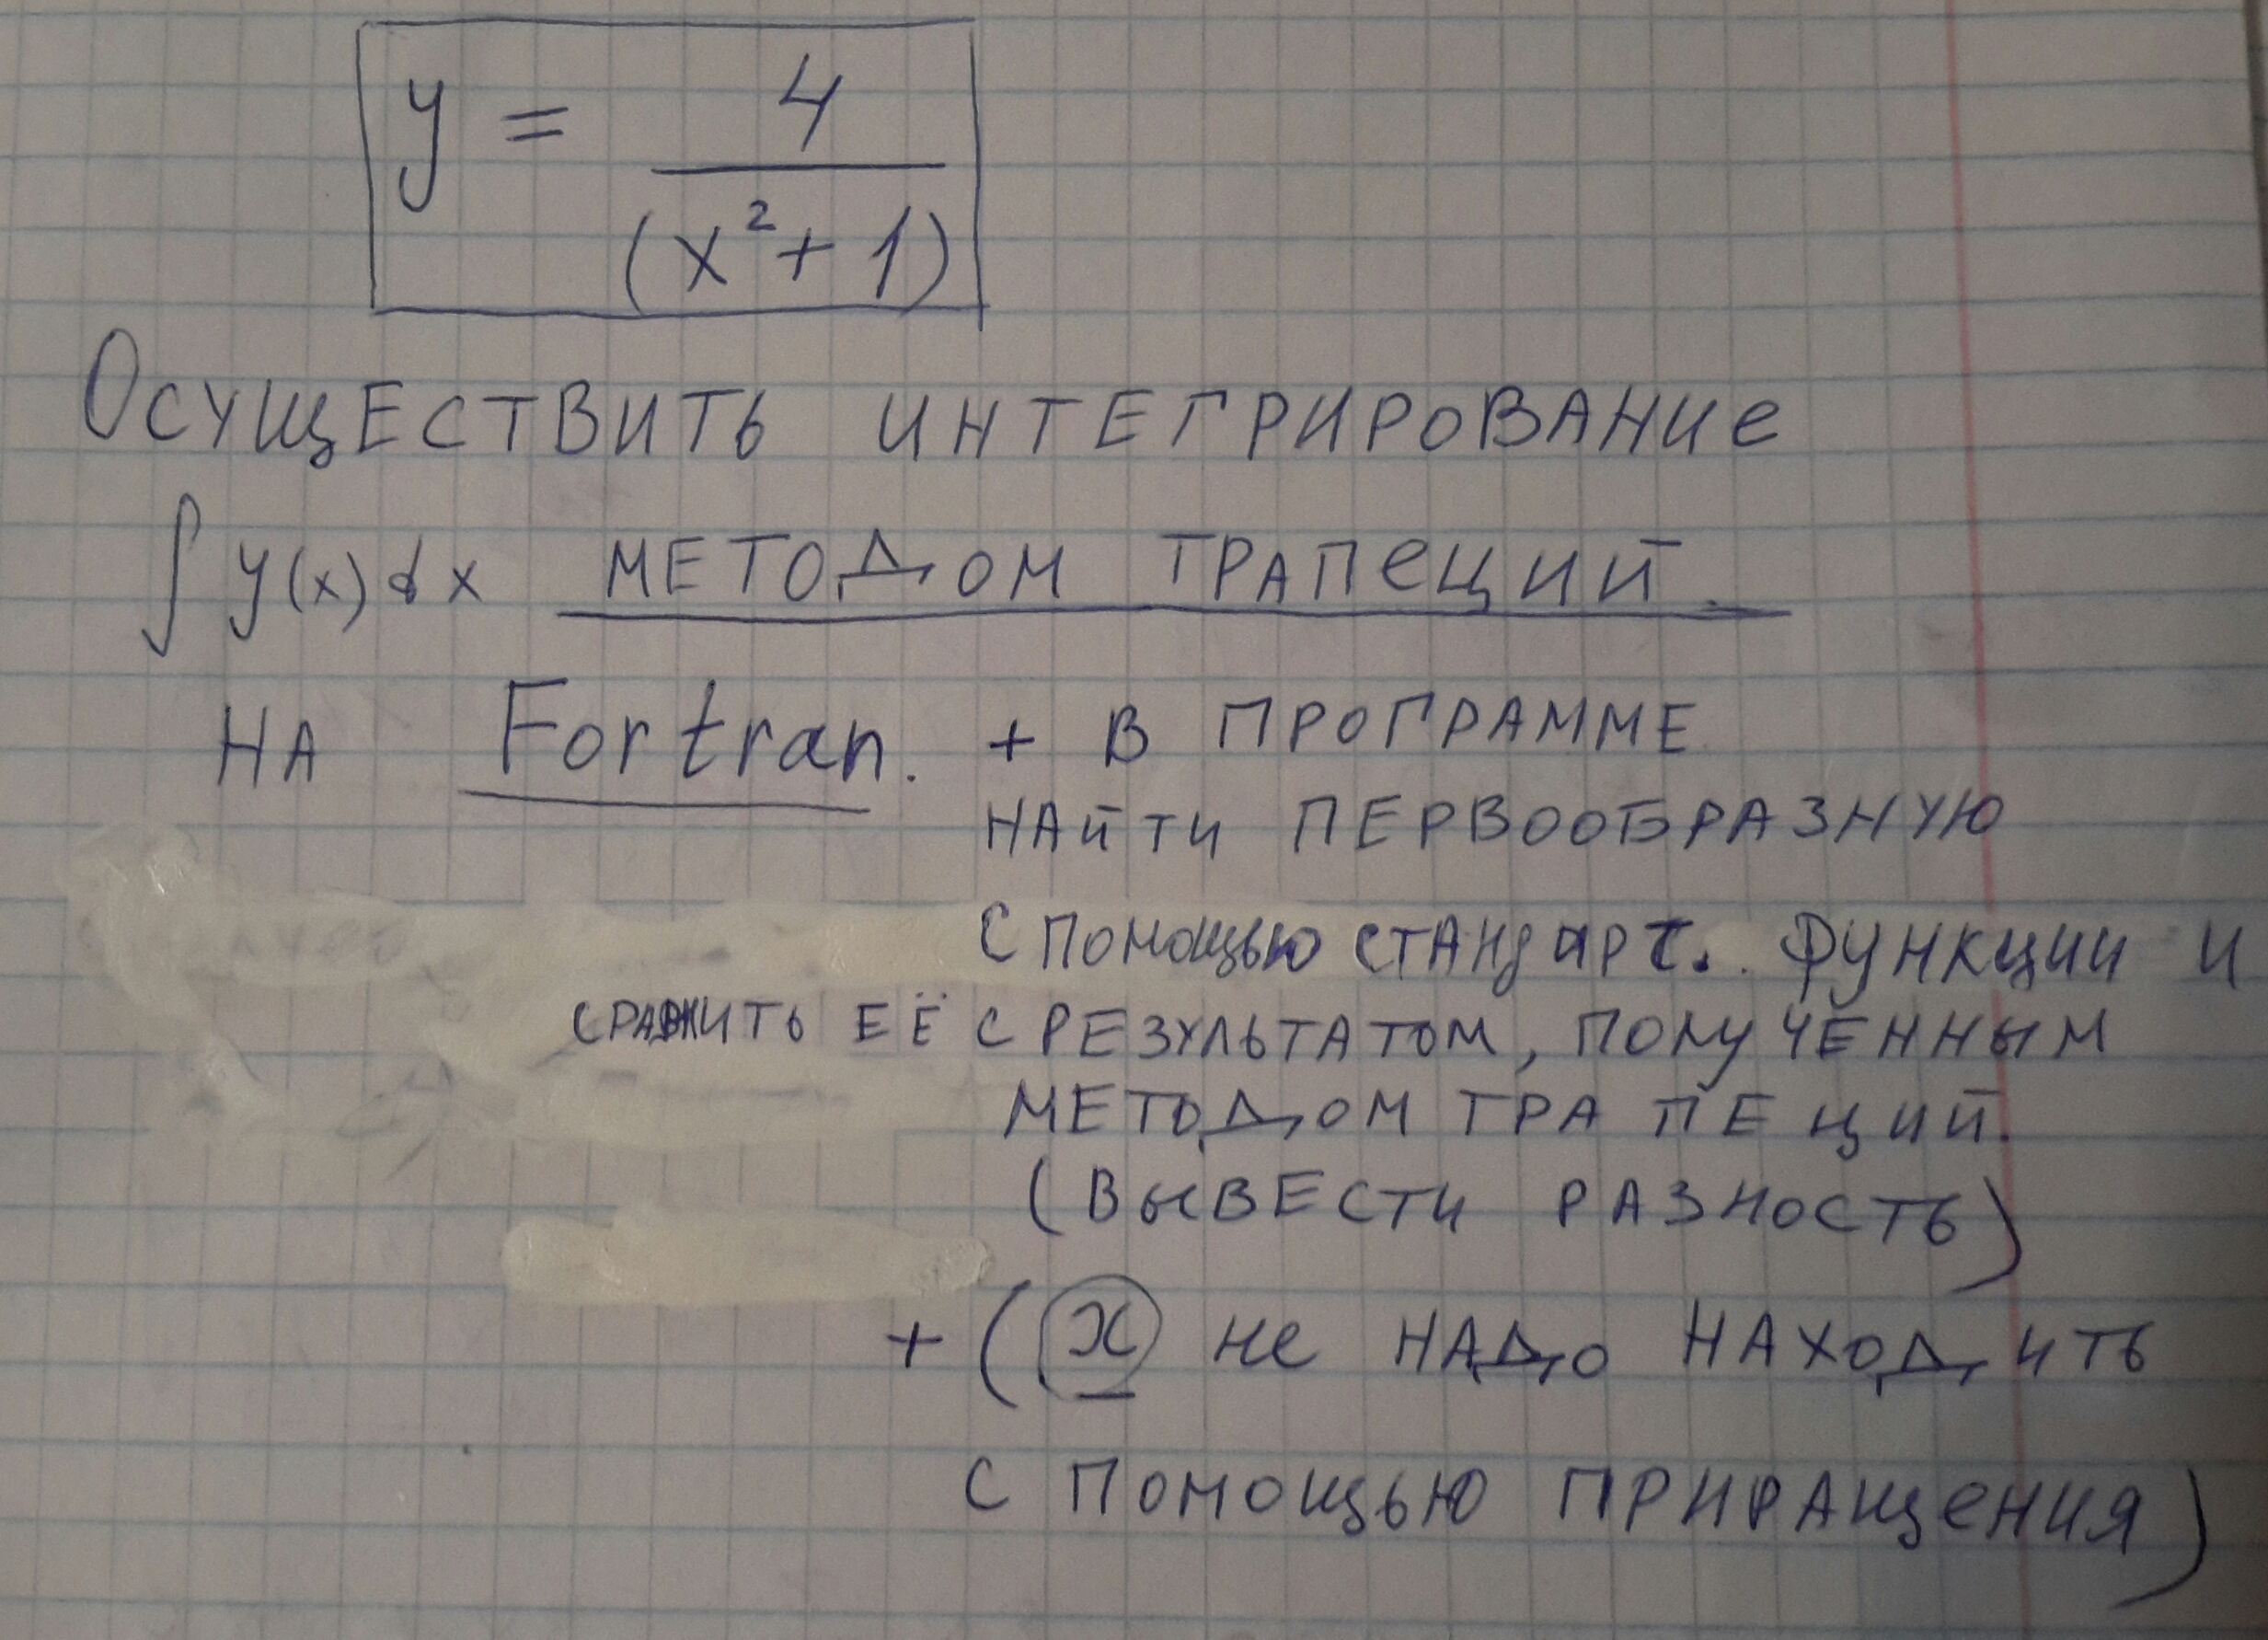 y = 4 / (x² + 1)
Осуществить интегрирование
∫ y(x) dx методом трапеций.
на Fortran. + в программе
найти первообразную
с помощью стандарт. функции и
сравнить её с результатом, полученным
методом трапеций.
(вывести разность)
+ (x не надо находить
с помощью приращения)